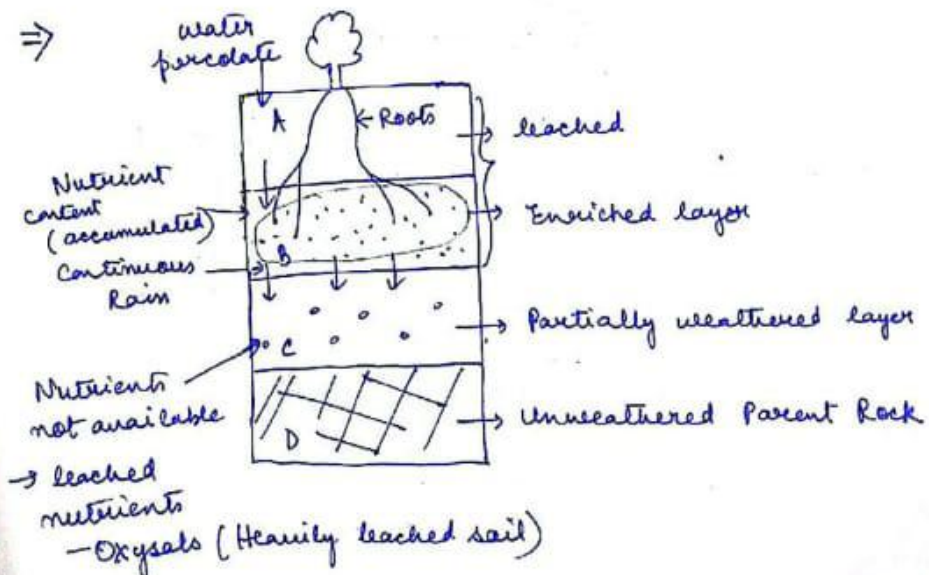 ⇒
water
percolate
A
← Roots
→ leached
Nutrient
content
(accumulated)
→ Enriched layer
B
Continuous
Rain
→ Partially weathered layer
C
Nutrients
not available
→ Unweathered Parent Rock
D
→ leached
nutrients
- Oxysals (Heavily leached sail)